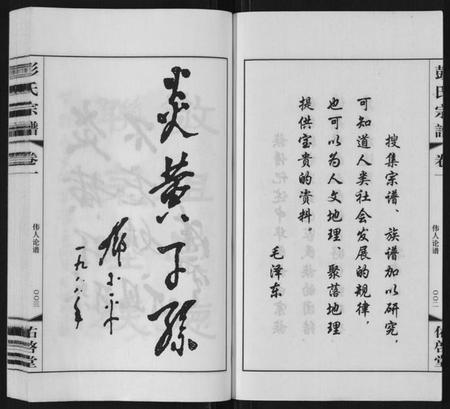 彭氏宗譜
卷一
伟人论谱
〇〇二
佑啓堂
搜集宗谱、族谱加以研究,
可知道人类社会发展的规律,
也可以为人文地理、聚落地理
提供宝贵的资料。
毛泽东
炎黄子孙
邓小平
一九八八年
彭氏宗譜
卷一
伟人论谱
〇〇三
佑啓堂